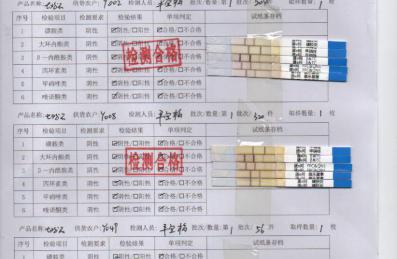 产品名称: 供货农户: Y002 检测人员: 批次/数量:第 1 批次/ 件 取样数量: 1 枚
序号 检验项目 检测要求 检验结果 单项判定 试纸条存档
1 磺胺类 阴性 ☑阴性/□阳性 ☑合格/□不合格
2 大环内酯类 阴性 ☑阴性/□阳性 ☑合格/□不合格
3 β-内酰胺类 阴性 阴性/□阳性 合格/□不合格
4 四环素类 阴性 ☑阴性/□阳性 ☑合格/□不合格
5 甲硝唑类 阴性 ☑阴性/□阳性 ☑合格/□不合格
6 喹诺酮类 阴性 ☑阴性/□阳性 ☑合格/□不合格
检测合格
产品名称: 供货农户: Y008 检测人员: 批次/数量:第 1 批次/ 320 件 取样数量: 1 枚
序号 检验项目 检测要求 检验结果 单项判定 试纸条存档
1 磺胺类 阴性 ☑阴性/□阳性 ☑合格/□不合格
2 大环内酯类 阴性 阴性/□阳性 合格/□不合格
3 β-内酰胺类 阴性 阴性/□阳性 合格/□不合格
4 四环素类 阴性 ☑阴性/□阳性 ☑合格/□不合格
5 甲硝唑类 阴性 ☑阴性/□阳性 ☑合格/□不合格
6 喹诺酮类 阴性 ☑阴性/□阳性 ☑合格/□不合格
检测合格
产品名称: 供货农户: Y049 检测人员: 批次/数量:第 1 批次/ 56 件 取样数量: 1 枚
序号 检验项目 检测要求 检验结果 单项判定 试纸条存档
1 磺胺类 阴性 ☑阴性/□阳性 ☑合格/□不合格